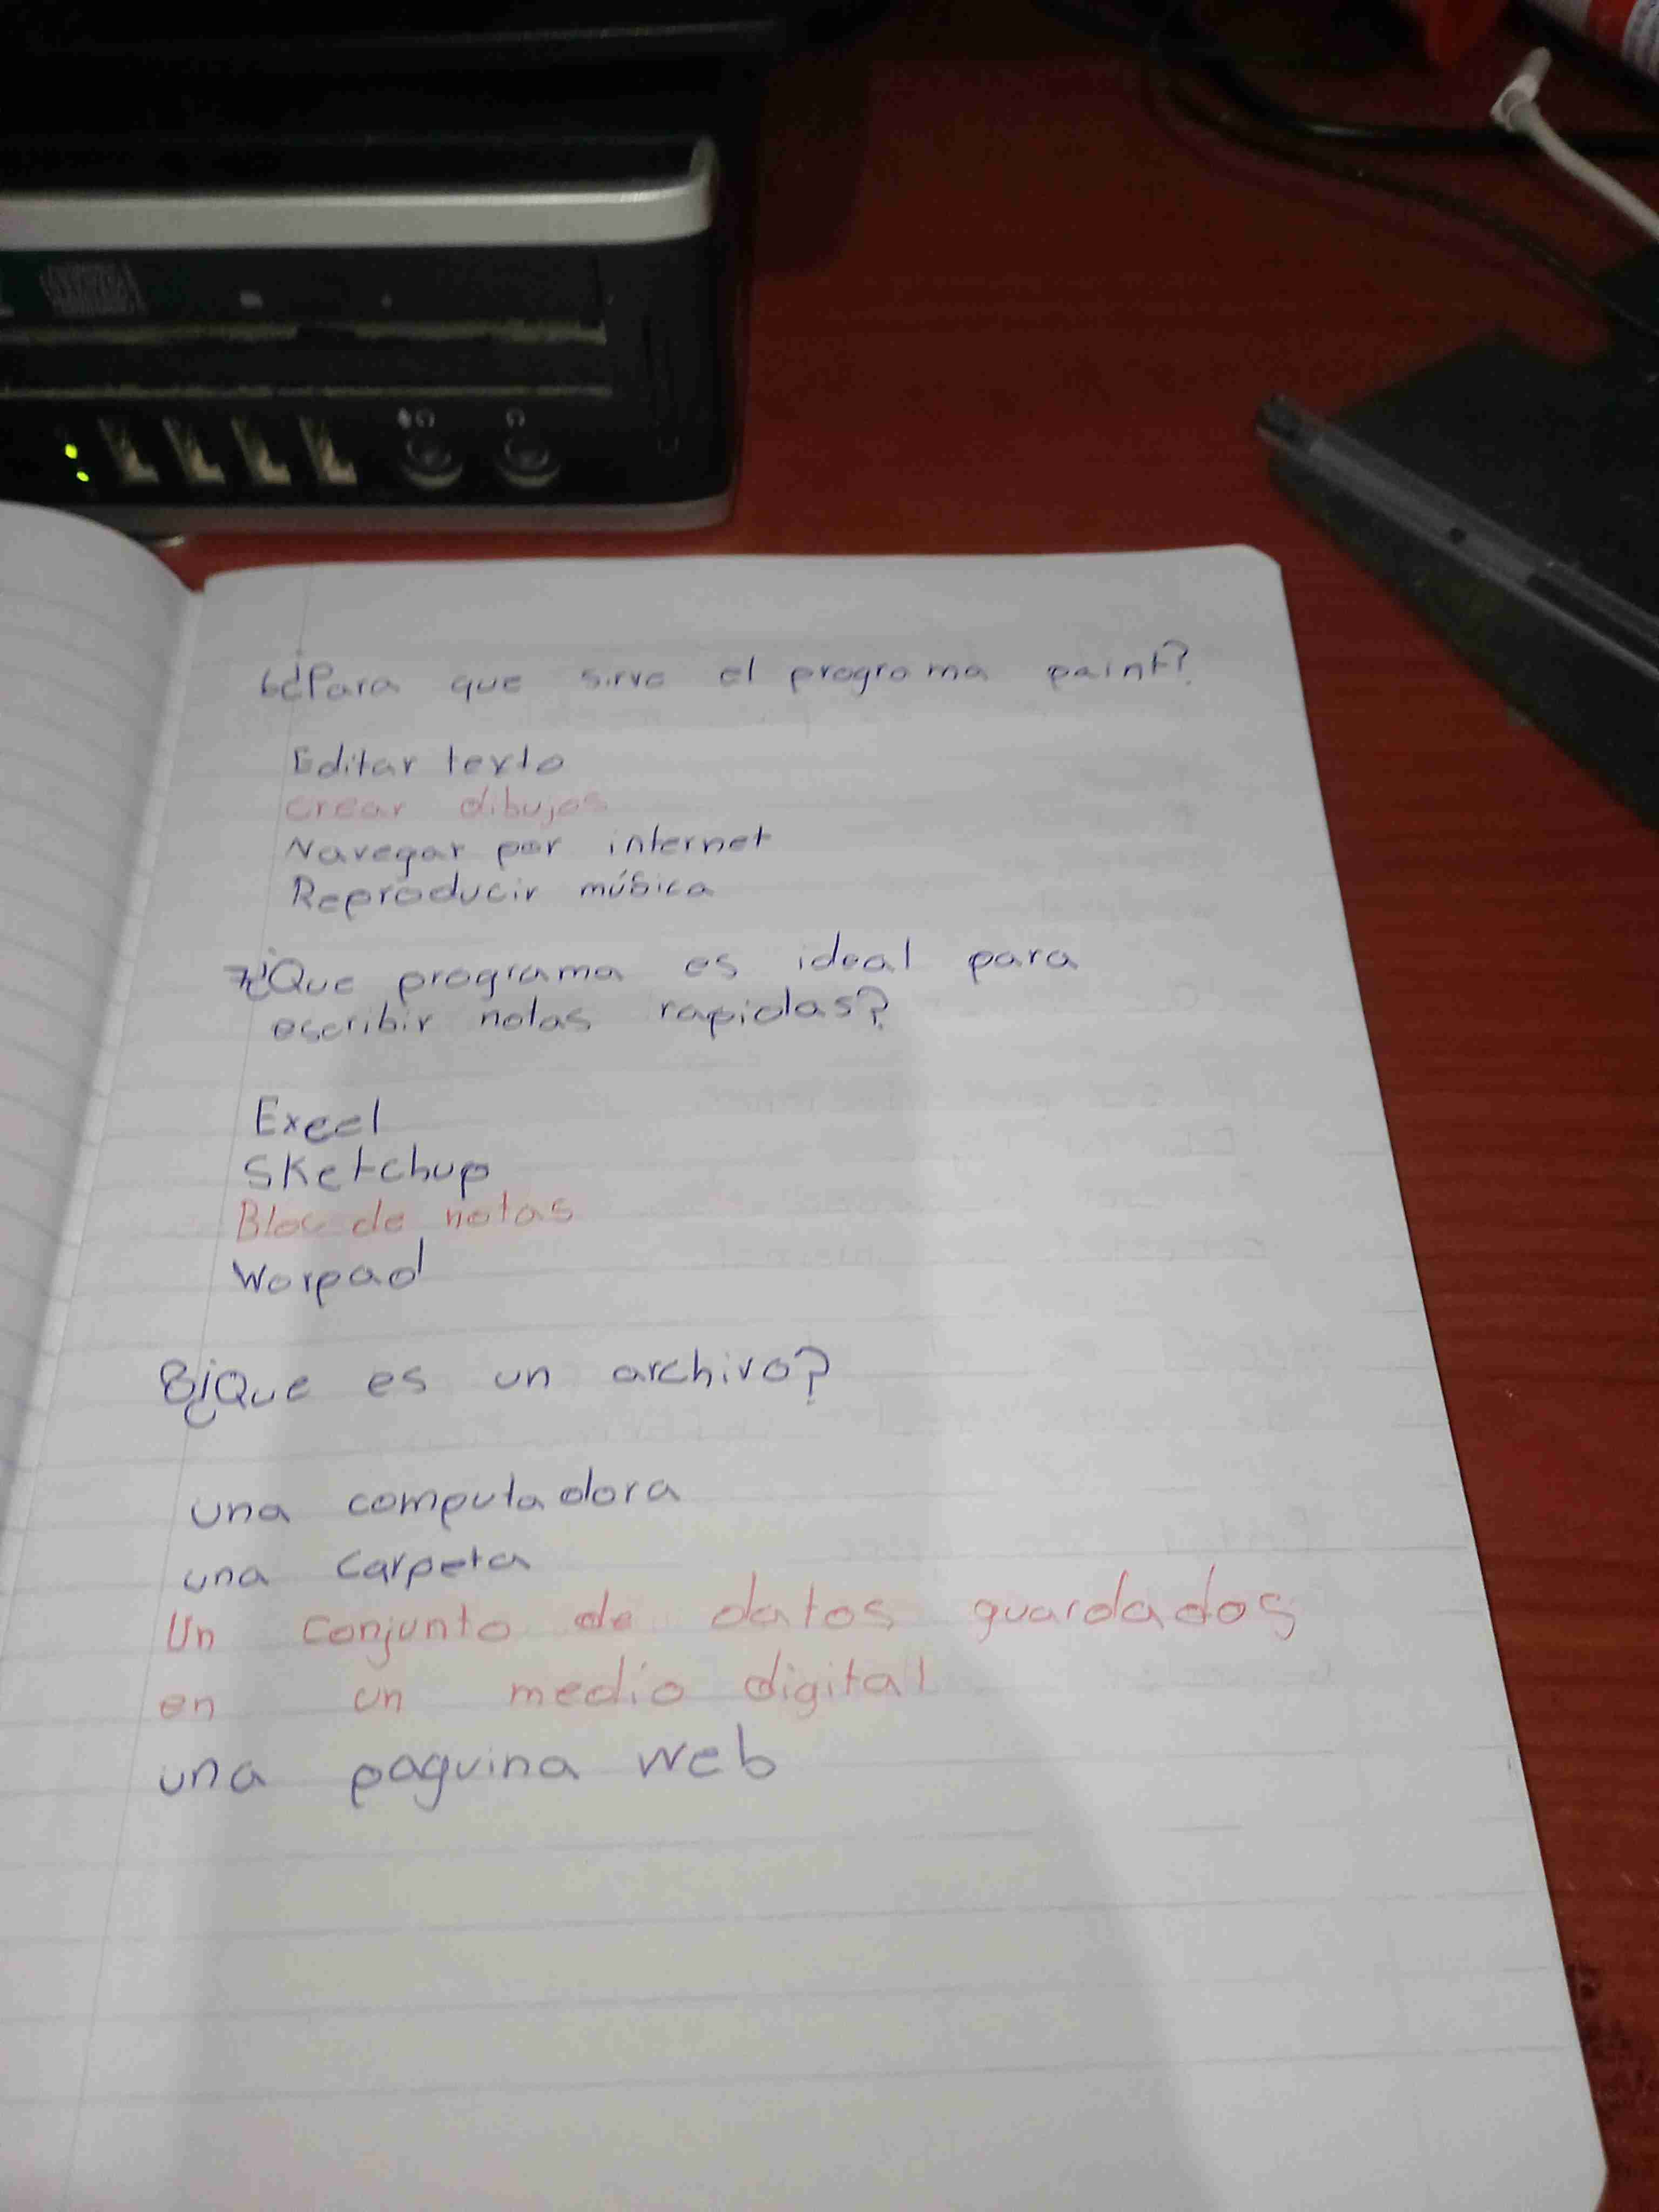 6¿Para que sirve el programa paint?
Editar texto
crear dibujos
Navegar por internet
Reproducir música
7¿Que programa es ideal para
escribir notas rapidas?
Excel
Sketchup
Bloc de notas
Worpad
8¿Que es un archivo?
una computadora
una carpeta
Un conjunto de datos guardados
en un medio digital
una paguina web